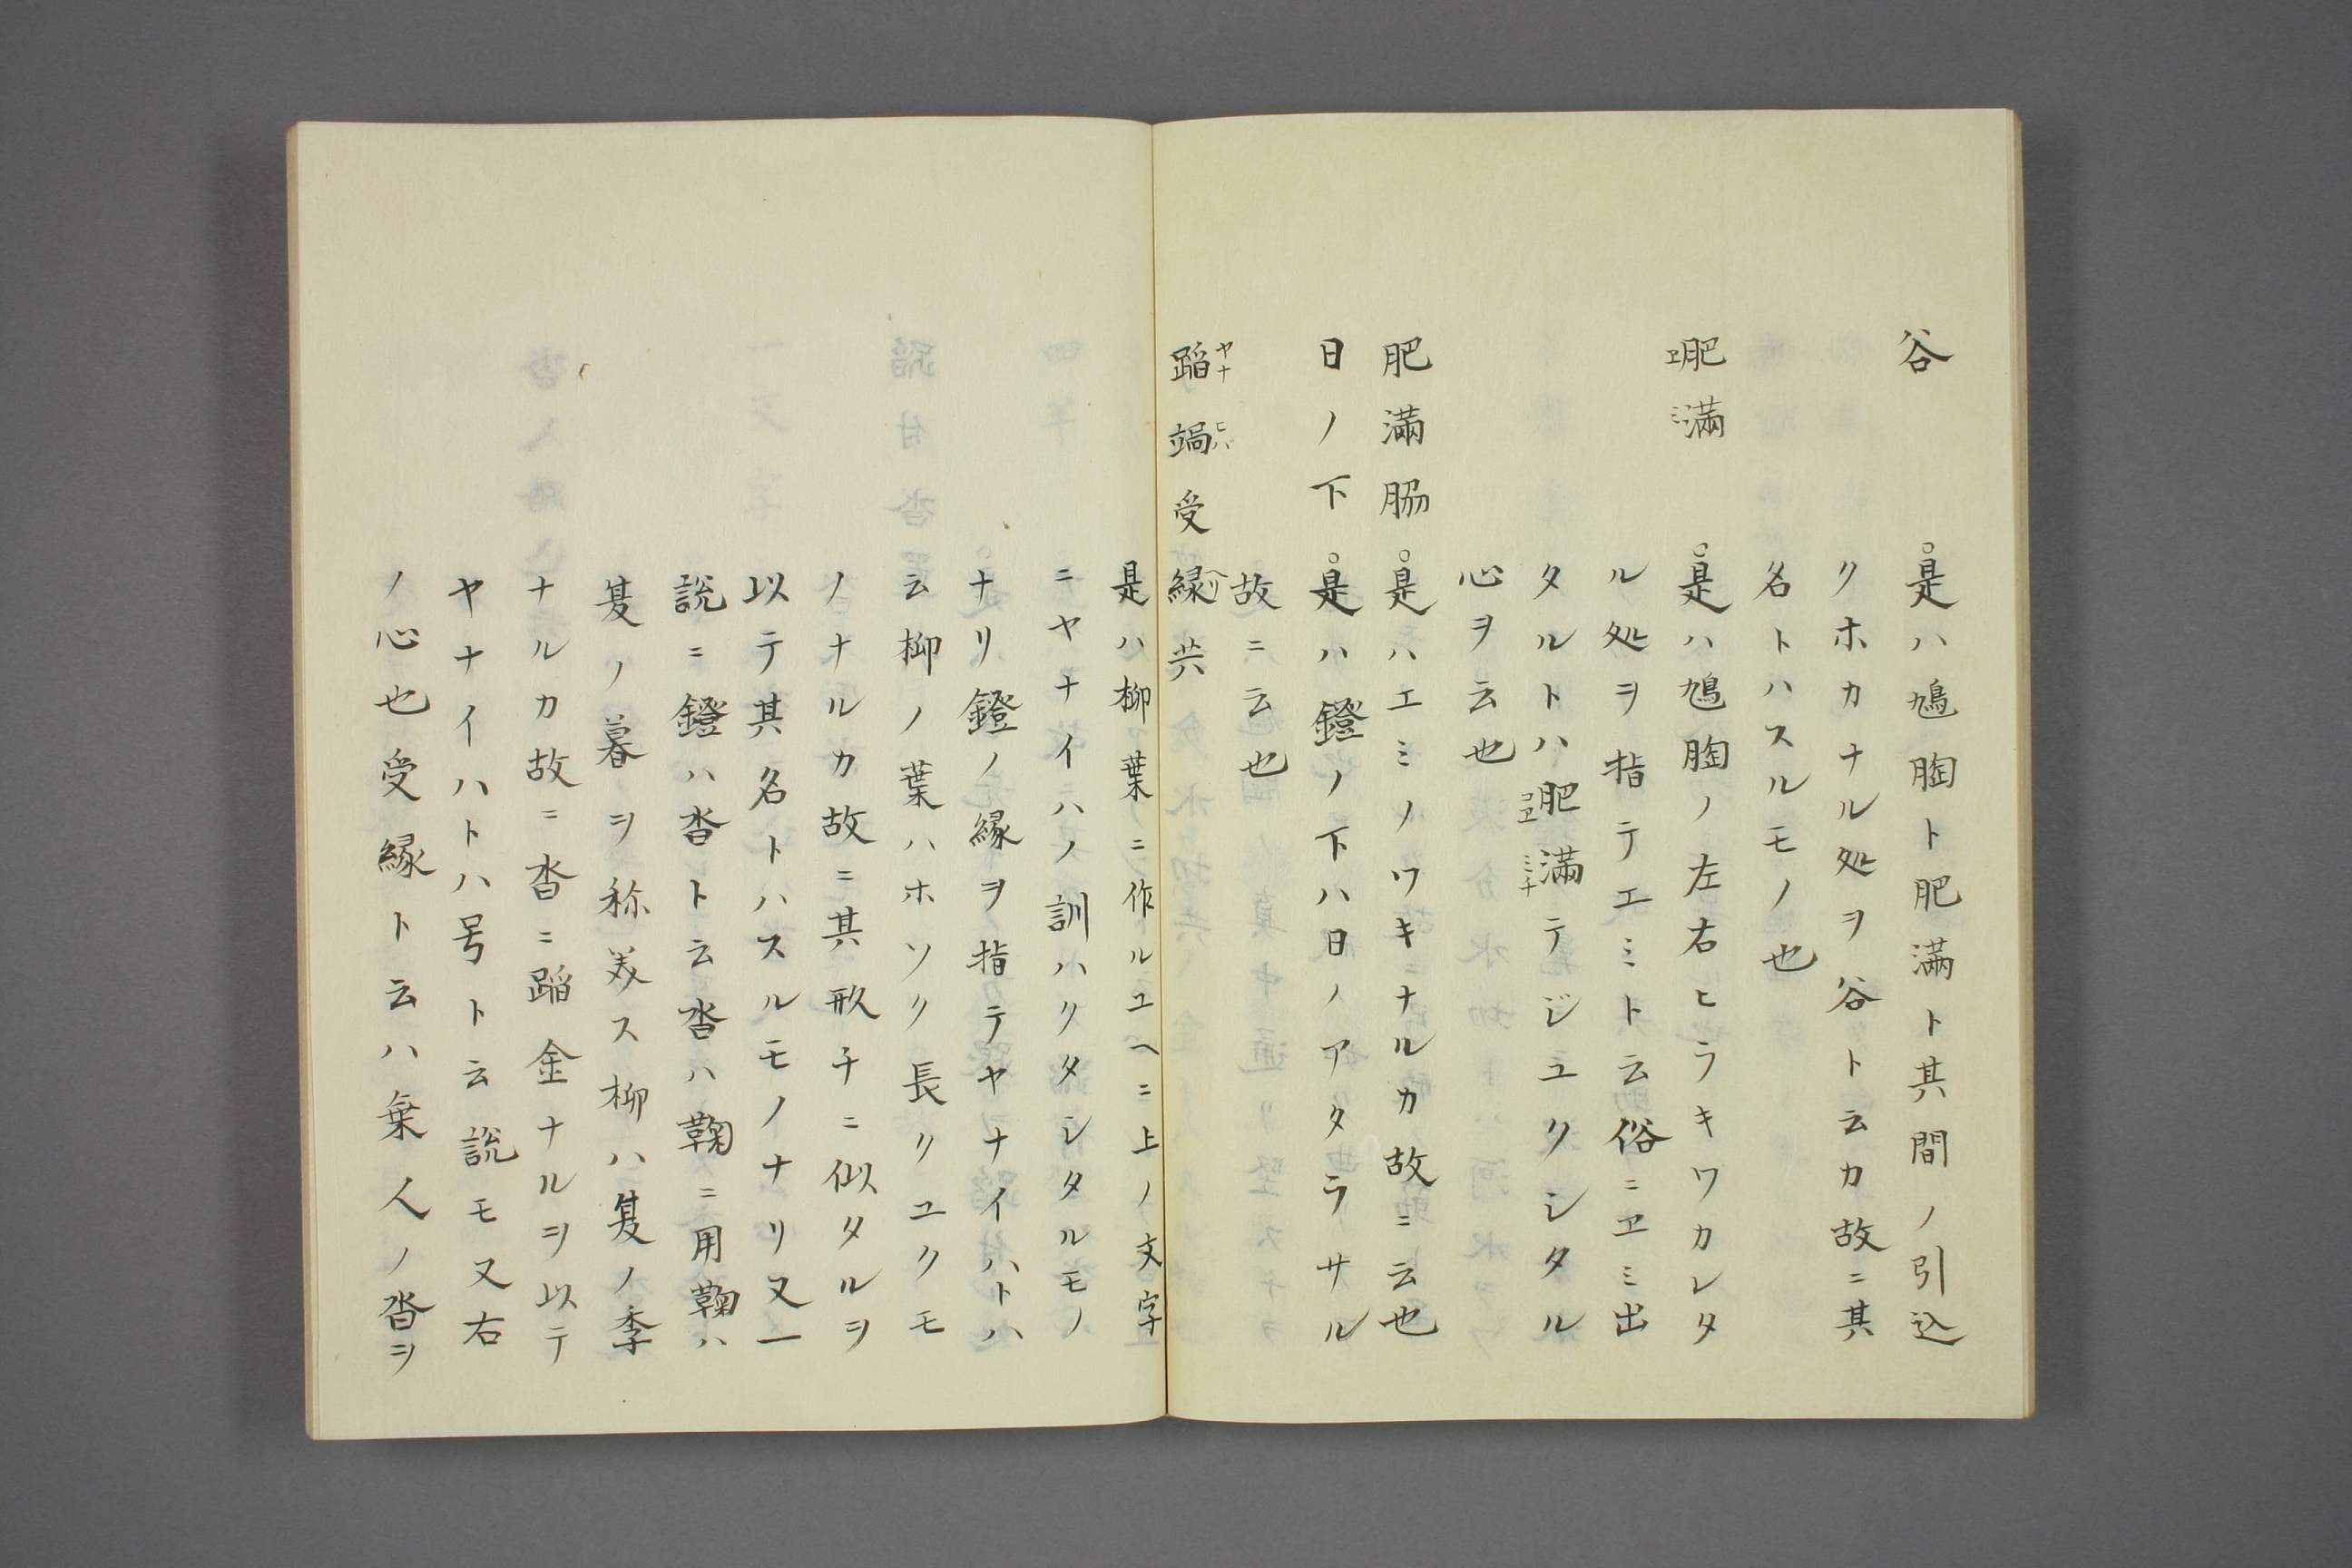 谷　○是ハ鳩胸ト肥満ト其間ノ引込
クホカナル処ヲ谷ト云カ故ニ其
名トハスルモノ也
肥満　○是ハ鳩胸ノ左右ヒラキワカレタ
ル処ヲ指テエミト云俗ニヱミ出
タルトハ肥満テジユクシタル
心ヲ云也
肥満脇　○是ハエミノワキナルカ故ニ云也
日ノ下　○是ハ鐙ノ下ハ日ノアタラサル
故ニ云也
受縁共
是ハ柳葉ニ作ルユヘニ上ノ文字
ニヤナイハノ訓ハクタシタルモノ
ナリ鐙ノ縁ヲ指テヤナイハトハ
云柳ノ葉ハホソク長クユクモ
ノナルカ故ニ其形チニ似タルヲ
以テ其名トハスルモノナリ又一
説ニ鐙ハ沓ト云沓ハ鞠ニ用鞠ハ
夏ノ暮ヲ称美ス柳ハ夏ノ季
ナルカ故ニ沓ニ蹈金ナルヲ以テ
ヤナイハトハ号ト云説モ又右
ノ心也受縁ト云ハ乗人ノ沓ヲ